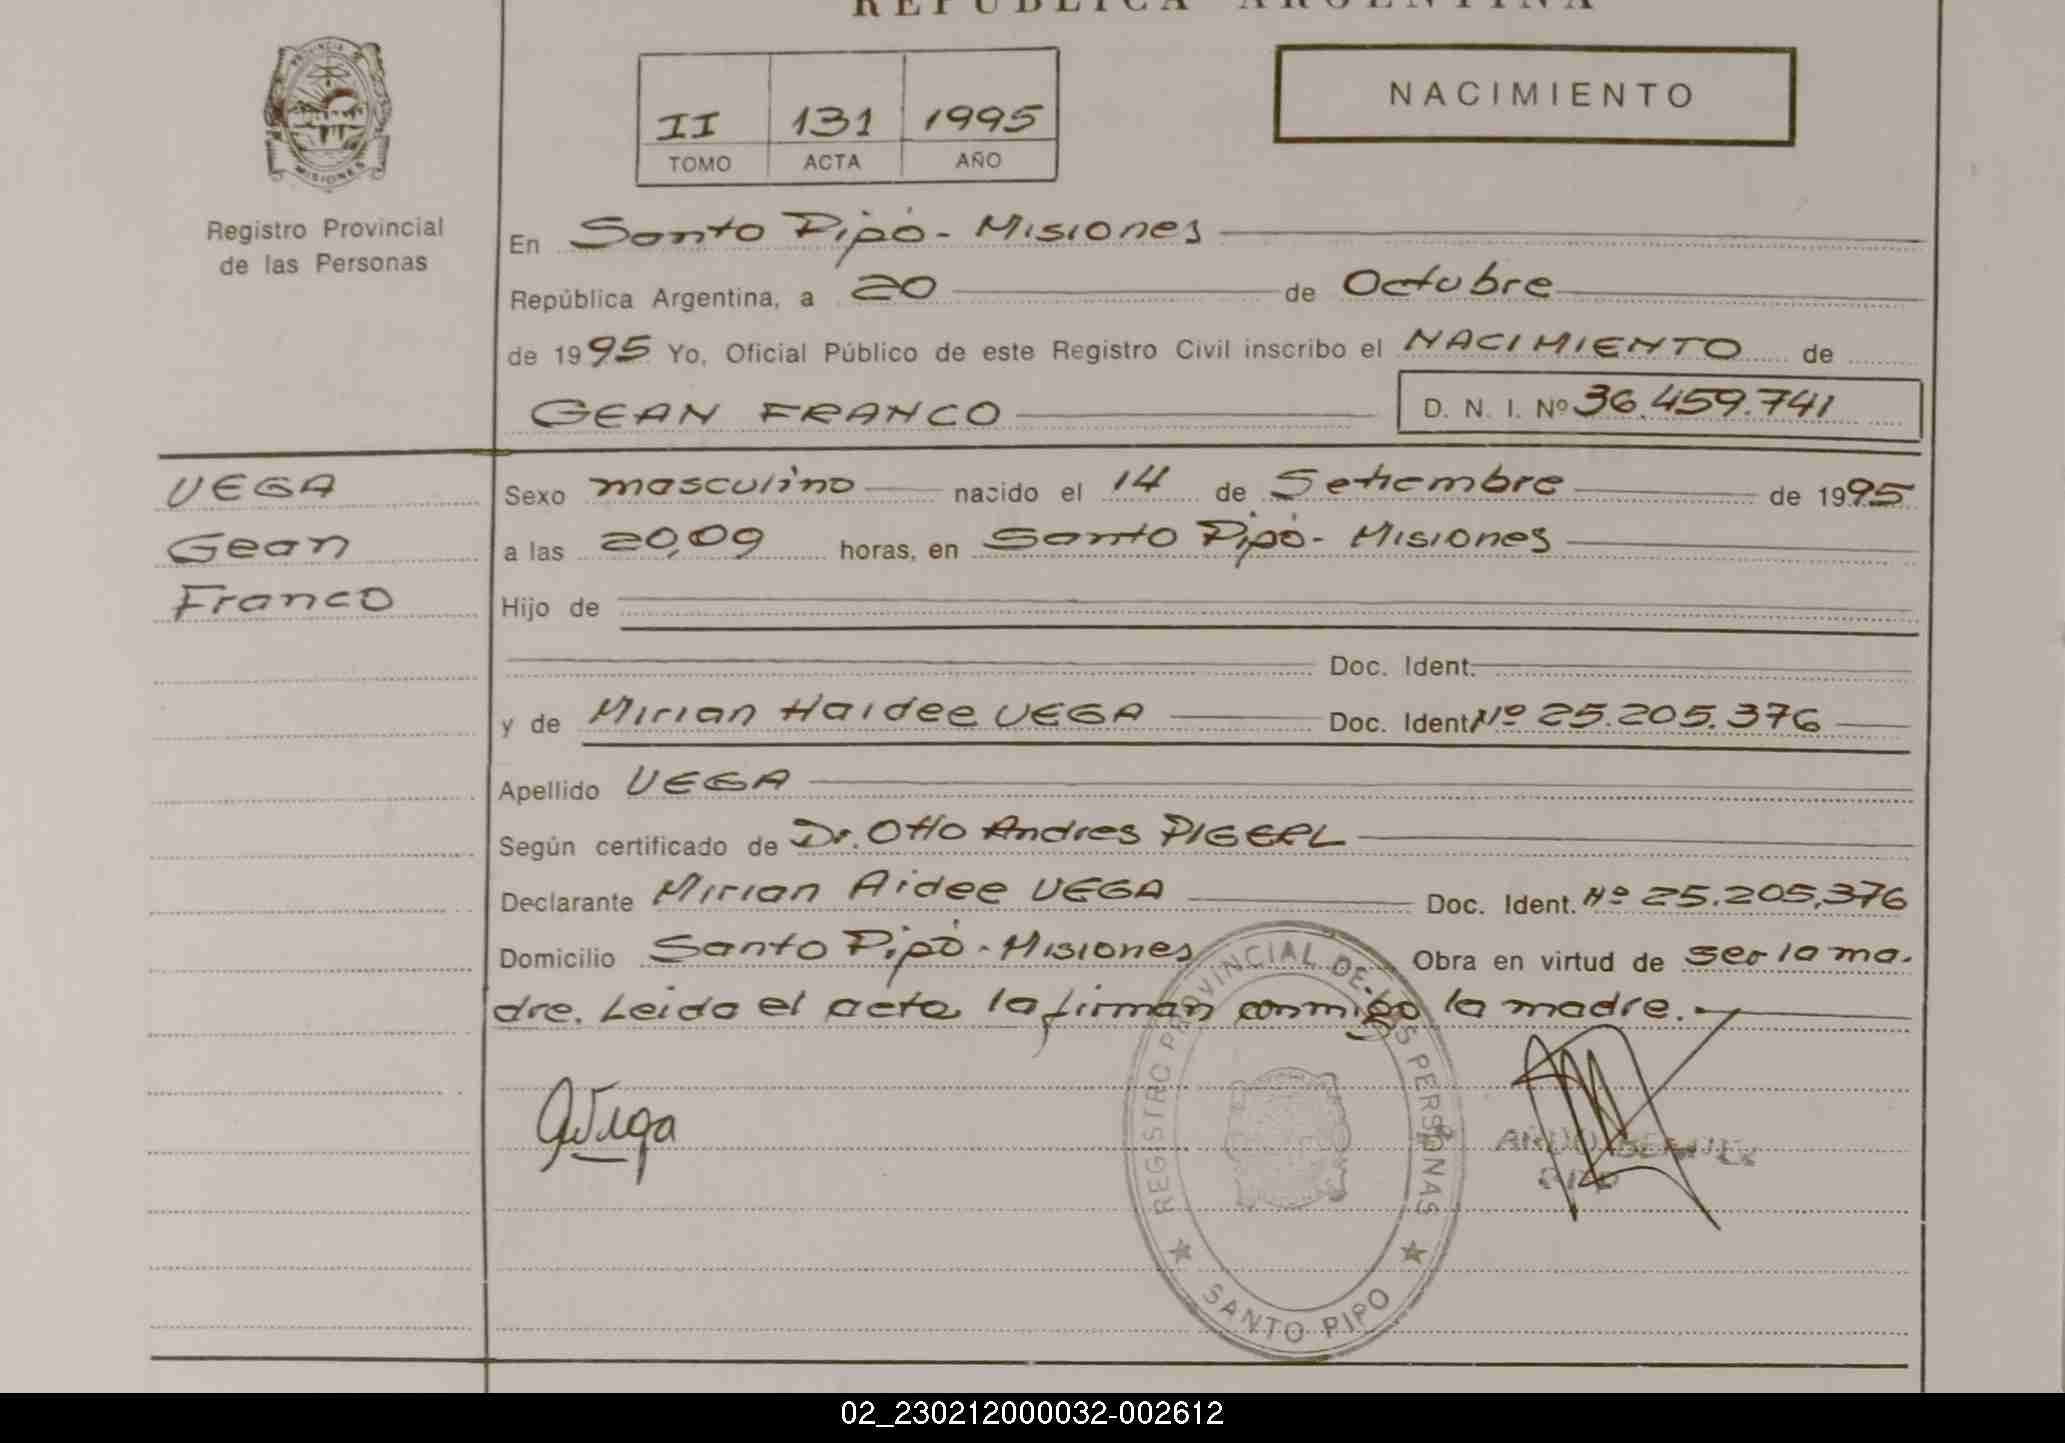 REPUBLICA ARGENTINA
PROVINCIA DE
MISIONES
Registro Provincial
de las Personas
II 131 1995
TOMO ACTA AÑO
NACIMIENTO
En Santo Pipó - Misiones
República Argentina, a 20 de Octubre
de 1995 Yo, Oficial Público de este Registro Civil inscribo el NACIMIENTO de
GEAN FRANCO D. N. I. Nº 36.459.741
VEGA
Gean
Franco
Sexo masculino nacido el 14 de Setiembre de 1995
a las 20,09 horas, en Santo Pipó - Misiones
Hijo de
Doc. Ident.
y de Mirian Haidee VEGA Doc. Ident Nº 25.205.376
Apellido VEGA
Según certificado de Dr. Otto Andres PIGERL
Declarante Mirian Aidee VEGA Doc. Ident. Nº 25.205,376
Domicilio Santo Pipó - Misiones Obra en virtud de ser la ma.
dre. Leida el acta, la firman conmigo la madre.-
Vega
REGISTRO PROVINCIAL DE LAS PERSONAS
SANTO PIPO
02_230212000032-002612